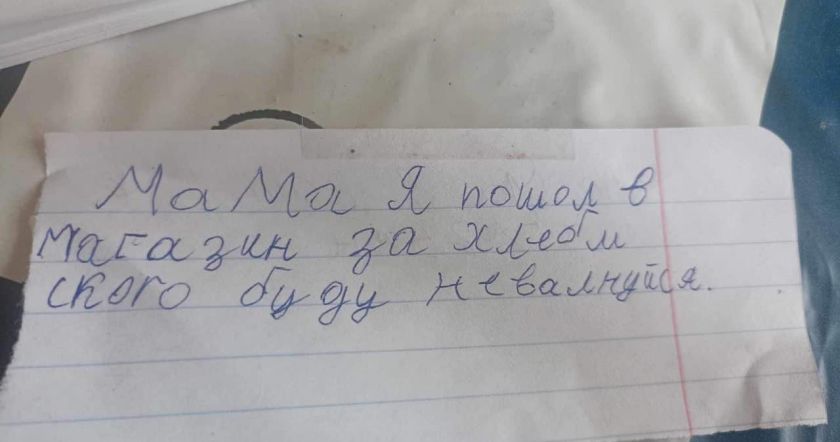 МаМа Я пошол в
магазин за хлебм
ского буду невалнуйся.